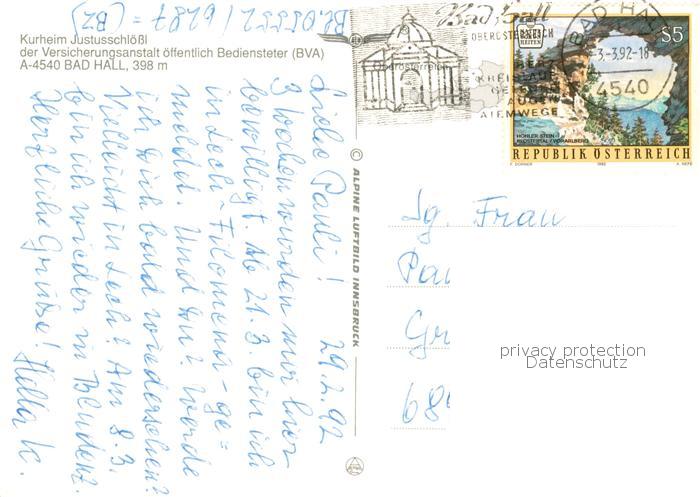 Bl. 05552 / 6287 =
(BZ)
Kurheim Justusschlößl
der Versicherungsanstalt öffentlich Bediensteter (BVA)
A-4540 BAD HALL, 398 m
Bad Hall
OBERÖSTERREICH
Oberösterreich
HERZ
KREISLAUF
GEFÄSSE
AUGEN
ATEMWEGE
BAD HALL
-3.-3.92-18
4540
S5
HOHLER STEIN
KLOSTERTAL / VORARLBERG
REPUBLIK ÖSTERREICH
1992
29.2.92
Liebe Pauli!
3 Wochen wurden mir hier
bewilligt. Ab 21.3. bin ich
in Lech - Filomena - ge=
meldet. Und Du? Werde
ich Dich bald wiedersehen?
Vielleicht in Lech? Am 8.3.
bin ich wieder in Bludenz.
Herzliche Grüße! Hella K.
© ALPINE LUFTBILD INNSBRUCK
Sg. Frau
Pau
Gr
68
privacy protection
Datenschutz